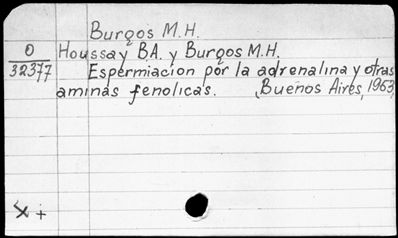 Burgos M.H.
O Houssay BA. y Burgos M.H.
32377 Espermiación por la adrenalina y otras
aminas fenolicas. Buenos Aires, 1963
x +